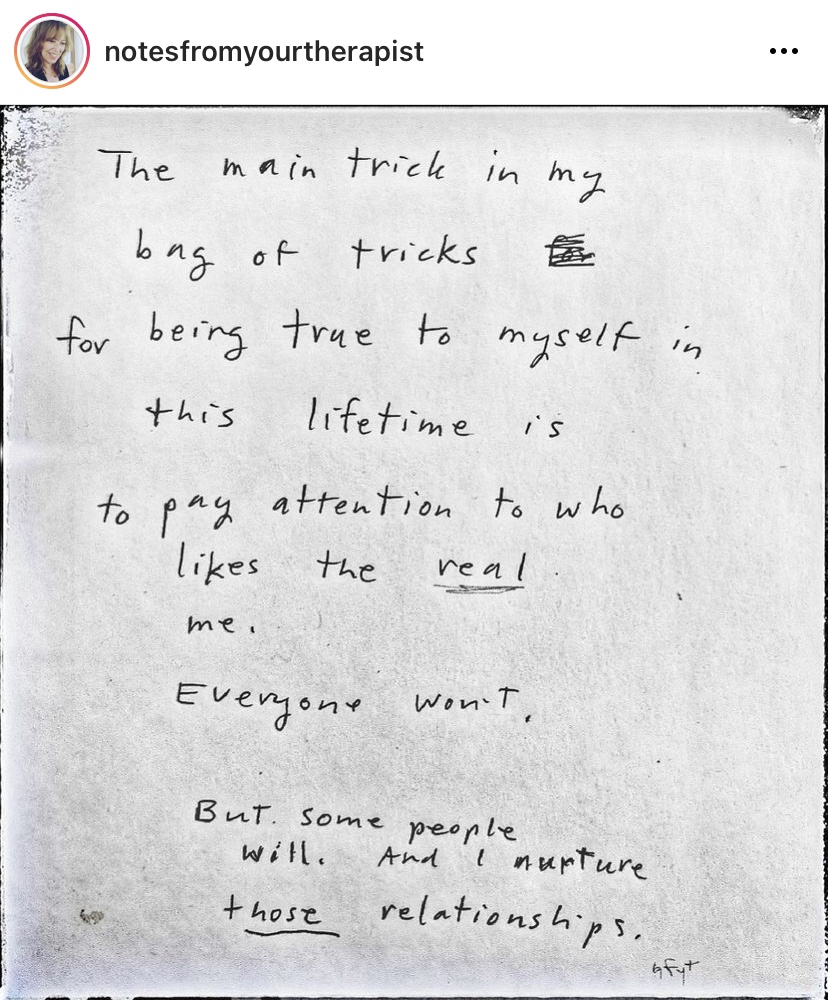 notesfromyourtherapist
The main trick in my
bag of tricks
for being true to myself in
this lifetime is
to pay attention to who
likes the real
me.
Everyone won't.
But some people
will. And I nurture
those relationships.
nfyt